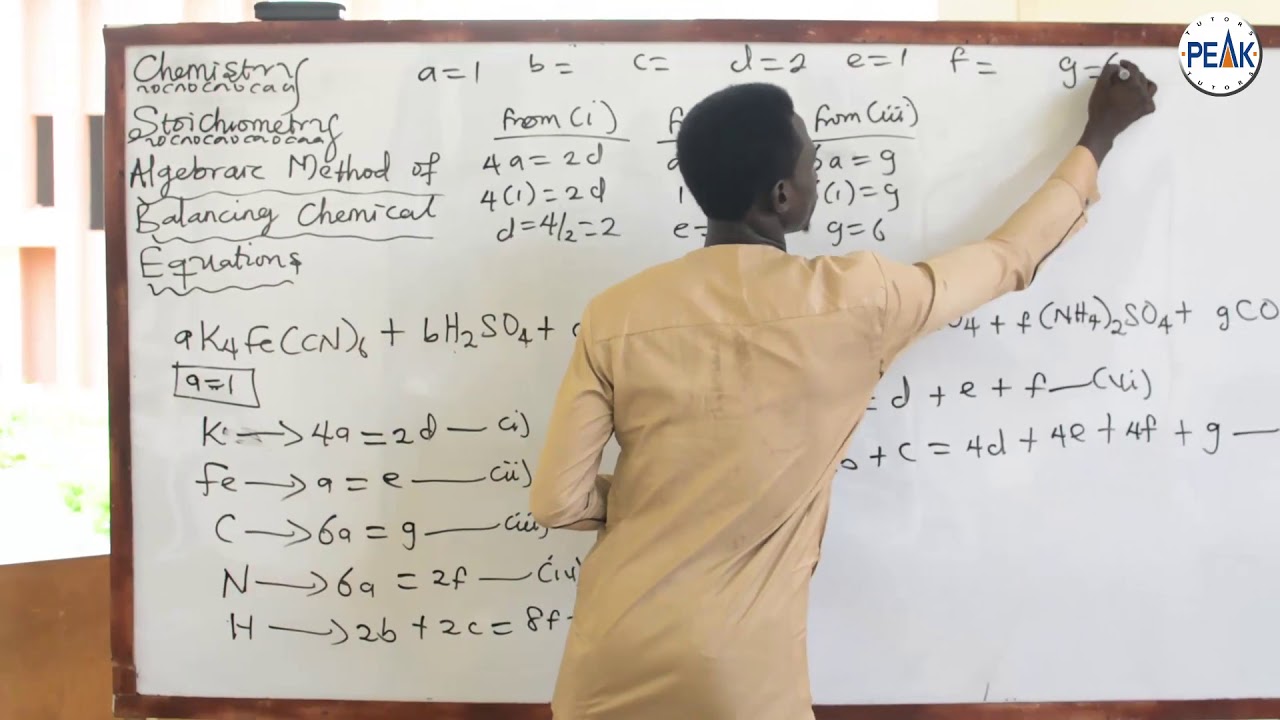 Chemistry
Stoichiometry
Algebraic Method of
Balancing Chemical
Equations
a=1 b= c= d=2 e=1 f= g=6
from (i)
4a=2d
4(1)=2d
d=4/2=2
from (iii)
6a=g
(1)=g
g=6
aK4Fe(CN)6 + bH2SO4 +
O4 + f(NH4)2SO4 + gCO
a=1
K → 4a=2d — (i)
Fe → a=e — (ii)
C → 6a=g — (iii)
N → 6a=2f — (iv)
H → 2b+2c=8f
= d+e+f — (vi)
+c=4d+4e+4f+g —
TUTORS
PEAK
TUTORS